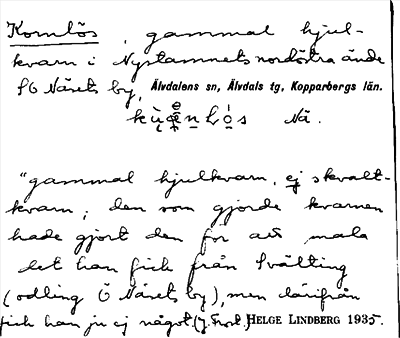 Kornlös, gammal hjul-
kvarn i Nystamnets nordöstra ände
SO Näsets by, Älvdalens sn, Älvdals tg, Kopparbergs län.
Nä.
"gammal hjulkvarn, ej skvalt-
kvarn; den som gjorde kvarnen
hade gjort den för att mala
det han fick från Svälting
(odling Ö Näsets by), men därifrån
fick han ju ej något. HELGE LINDBERG 1935.